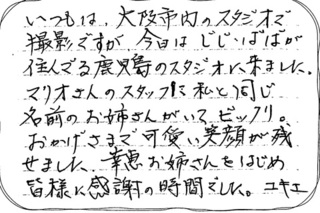 いつもは、大阪市内のスタジオで
撮影ですが、今日はじじ・ばばが
住んでる鹿児島のスタジオに来ました。
マリオさんのスタッフに私と同じ
名前のお姉さんがいて、ビックリ。
おかげさまで可愛い笑顔が残
せました。幸恵お姉さんをはじめ
皆様に感謝の時間でした。ユキエ